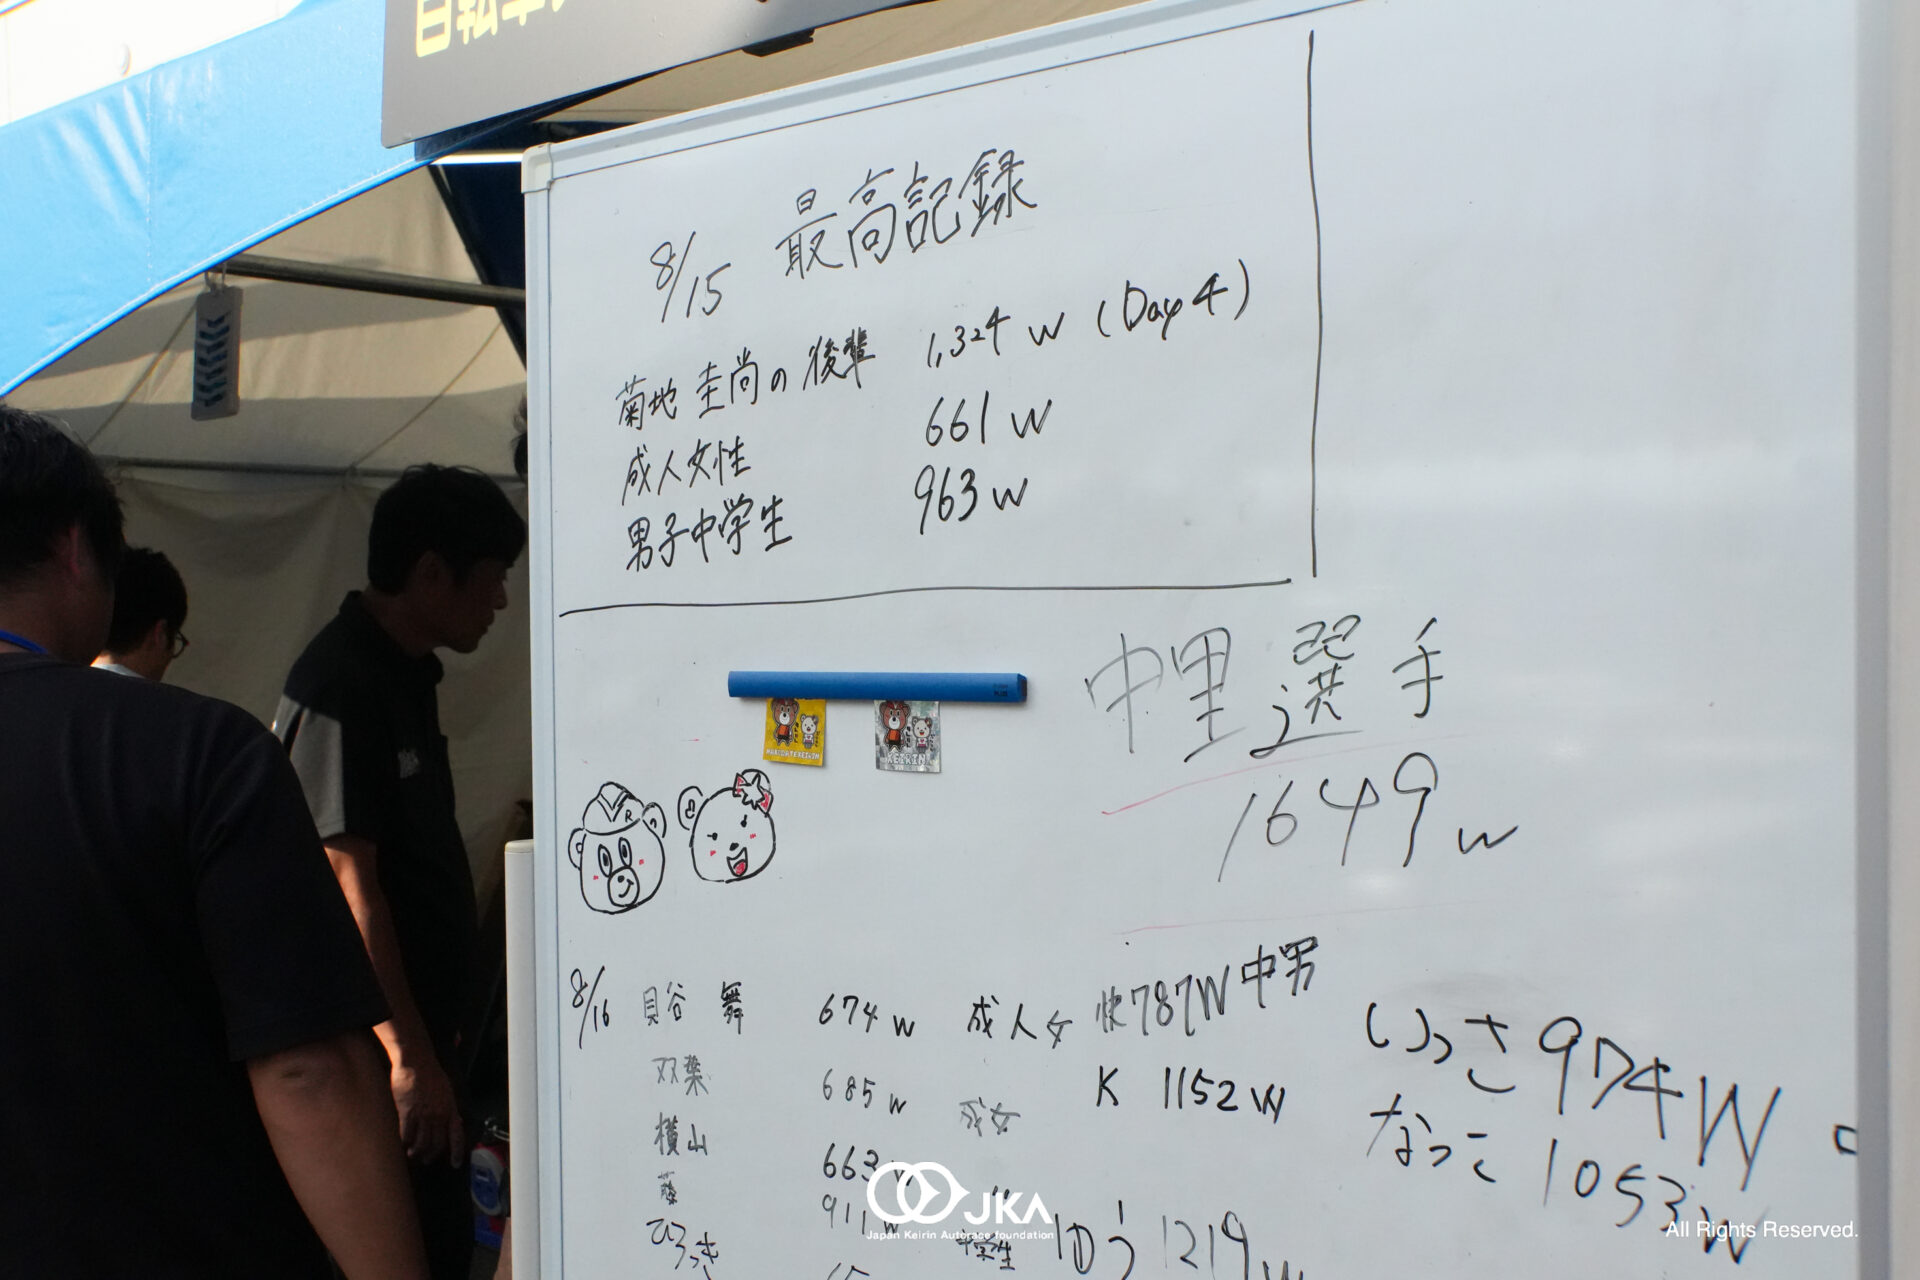 自転車
8/15 最高記録
菊地 圭尚の後輩 1,324 W (Day4)
成人女性 661 W
男子中学生 963 W
中里選手
1649 W
KEIRIN
8/16 貝谷 舞 674 W 成人女
双葉 685 W 成女
横山 663 W
藤 911 W 中学生
ひろっき
快787W 中男
K 1152 W
ゆう 1219 W
いっさ 974 W
なっこ 1053 W
JKA
Japan Keirin Autorace foundation
All Rights Reserved.